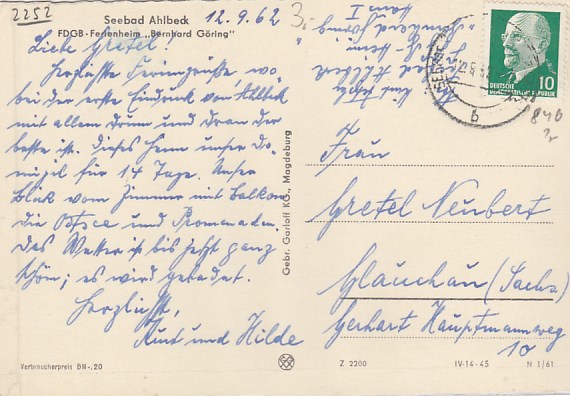 2252
Seebad Ahlbeck
12.9.62
FDGB-Ferienheim „Bernhard Göring"
3,-
Liebe Gretel!
Herzlichste Feriengrüße, wo-
bei der erste Eindruck von Ahlbeck
mit allem Drum und Dran der
beste ist. Dieses Heim unser Do-
mizil für 14 Tage. Unser
Blick vom Zimmer mit Balkon
die Ostsee und Promenaden.
Das Wetter ist bis jetzt ganz
schön; es wird gebadet.
Herzlichst,
Kurt und Hilde
Verbraucherpreis DM -,20
Gebr. Garloff KG., Magdeburg
Heim I
"Bernhard Göring"
Ahlbeck
DEUTSCHE
DEMOKRATISCHE REPUBLIK
10
b
840
Frau
Gretel Neubert
Glauchau (Sachs)
Gerhart Hauptmannweg
10
Z 2200
IV-14-45
N 1/61